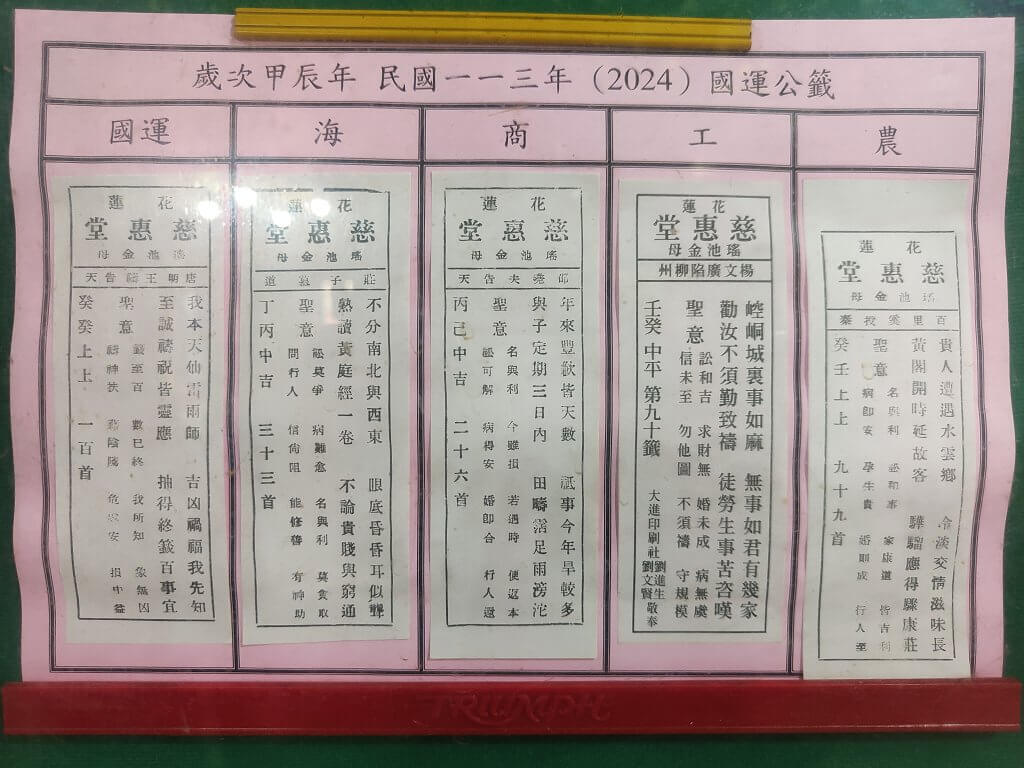 歲次甲辰年 民國一一三年（2024）國運公籤
國運 海 商 工 農
花蓮
慈惠堂
瑤池金母
唐明王禱告天
我本天仙雷雨師 吉凶禍福我先知
至誠禱祝皆靈應 抽得終籤百事宜
聖意
籤至百 數已終 我所知 象無凶
禱神扶 藉陰隲 危處安 損中益
癸癸上上 一百首
花蓮
慈惠堂
瑤池金母
莊子慕道
不分南北與西東 眼底昏昏耳似聾
熟讀黃庭經一卷 不論貴賤與窮通
聖意
訟莫爭 病難愈 名與利 莫貪取
問行人 信尚阻 能修善 有神助
丁丙中吉 三十三首
花蓮
慈惠堂
瑤池金母
邵堯夫告天
年來豐歉皆天數 祇事今年旱較多
與子定期三日內 田疇霑足雨滂沱
聖意
名與利 今雖損 若遇時 便返本
訟可解 病得安 婚即合 行人還
丙己中吉 二十六首
花蓮
慈惠堂
瑤池金母
楊文廣陷柳州
崆峒城裏事如麻 無事如君有幾家
勸汝不須勤致禱 徒勞生事苦咨嘆
聖意
訟和吉 求財無 婚未成 病無虞
信未至 勿他圖 不須禱 守規模
壬癸中平 第九十籤
大進印刷社 劉進生 劉文賢 敬奉
花蓮
慈惠堂
瑤池金母
百里奚投秦
貴人遭遇水雲鄉 冷淡交情滋味長
黃閣開時延故客 驊騮應得驟康莊
聖意
名與利 訟和事 家康遠 皆吉利
病即安 孕生貴 婚即成 行人至
癸壬上上 九十九首
TRIUMPH